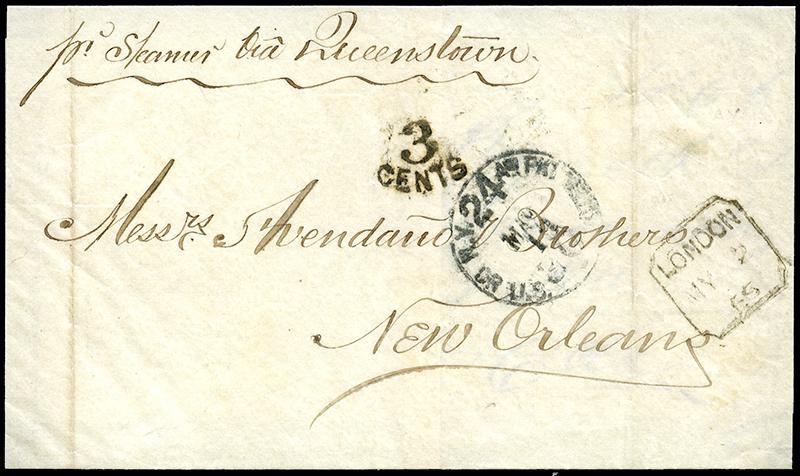 pr. Steamer via Queenstown.
3
CENTS
N.Y. 24 AM. PKT.
MAY
OR U.S.
Messrs. Avendaño Brothers
LONDON
MY 2
65
New Orleans